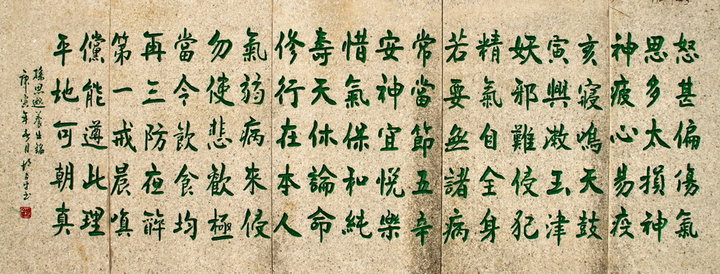 怒甚偏傷氣
思多太損神
神疲心易疫
亥寢鳴天鼓
寅興漱玉津
妖邪難侵犯
精氣自全身
若要無諸病
常當節五辛
安神宜悅樂
惜氣保和純
壽夭休論命
修行在本人
氣弱病來侵
勿使悲歡極
當令飲食均
再三防夜醉
第一戒晨嗔
儻能遵此理
平地可朝真
孫思邈養生銘
庚寅年月書